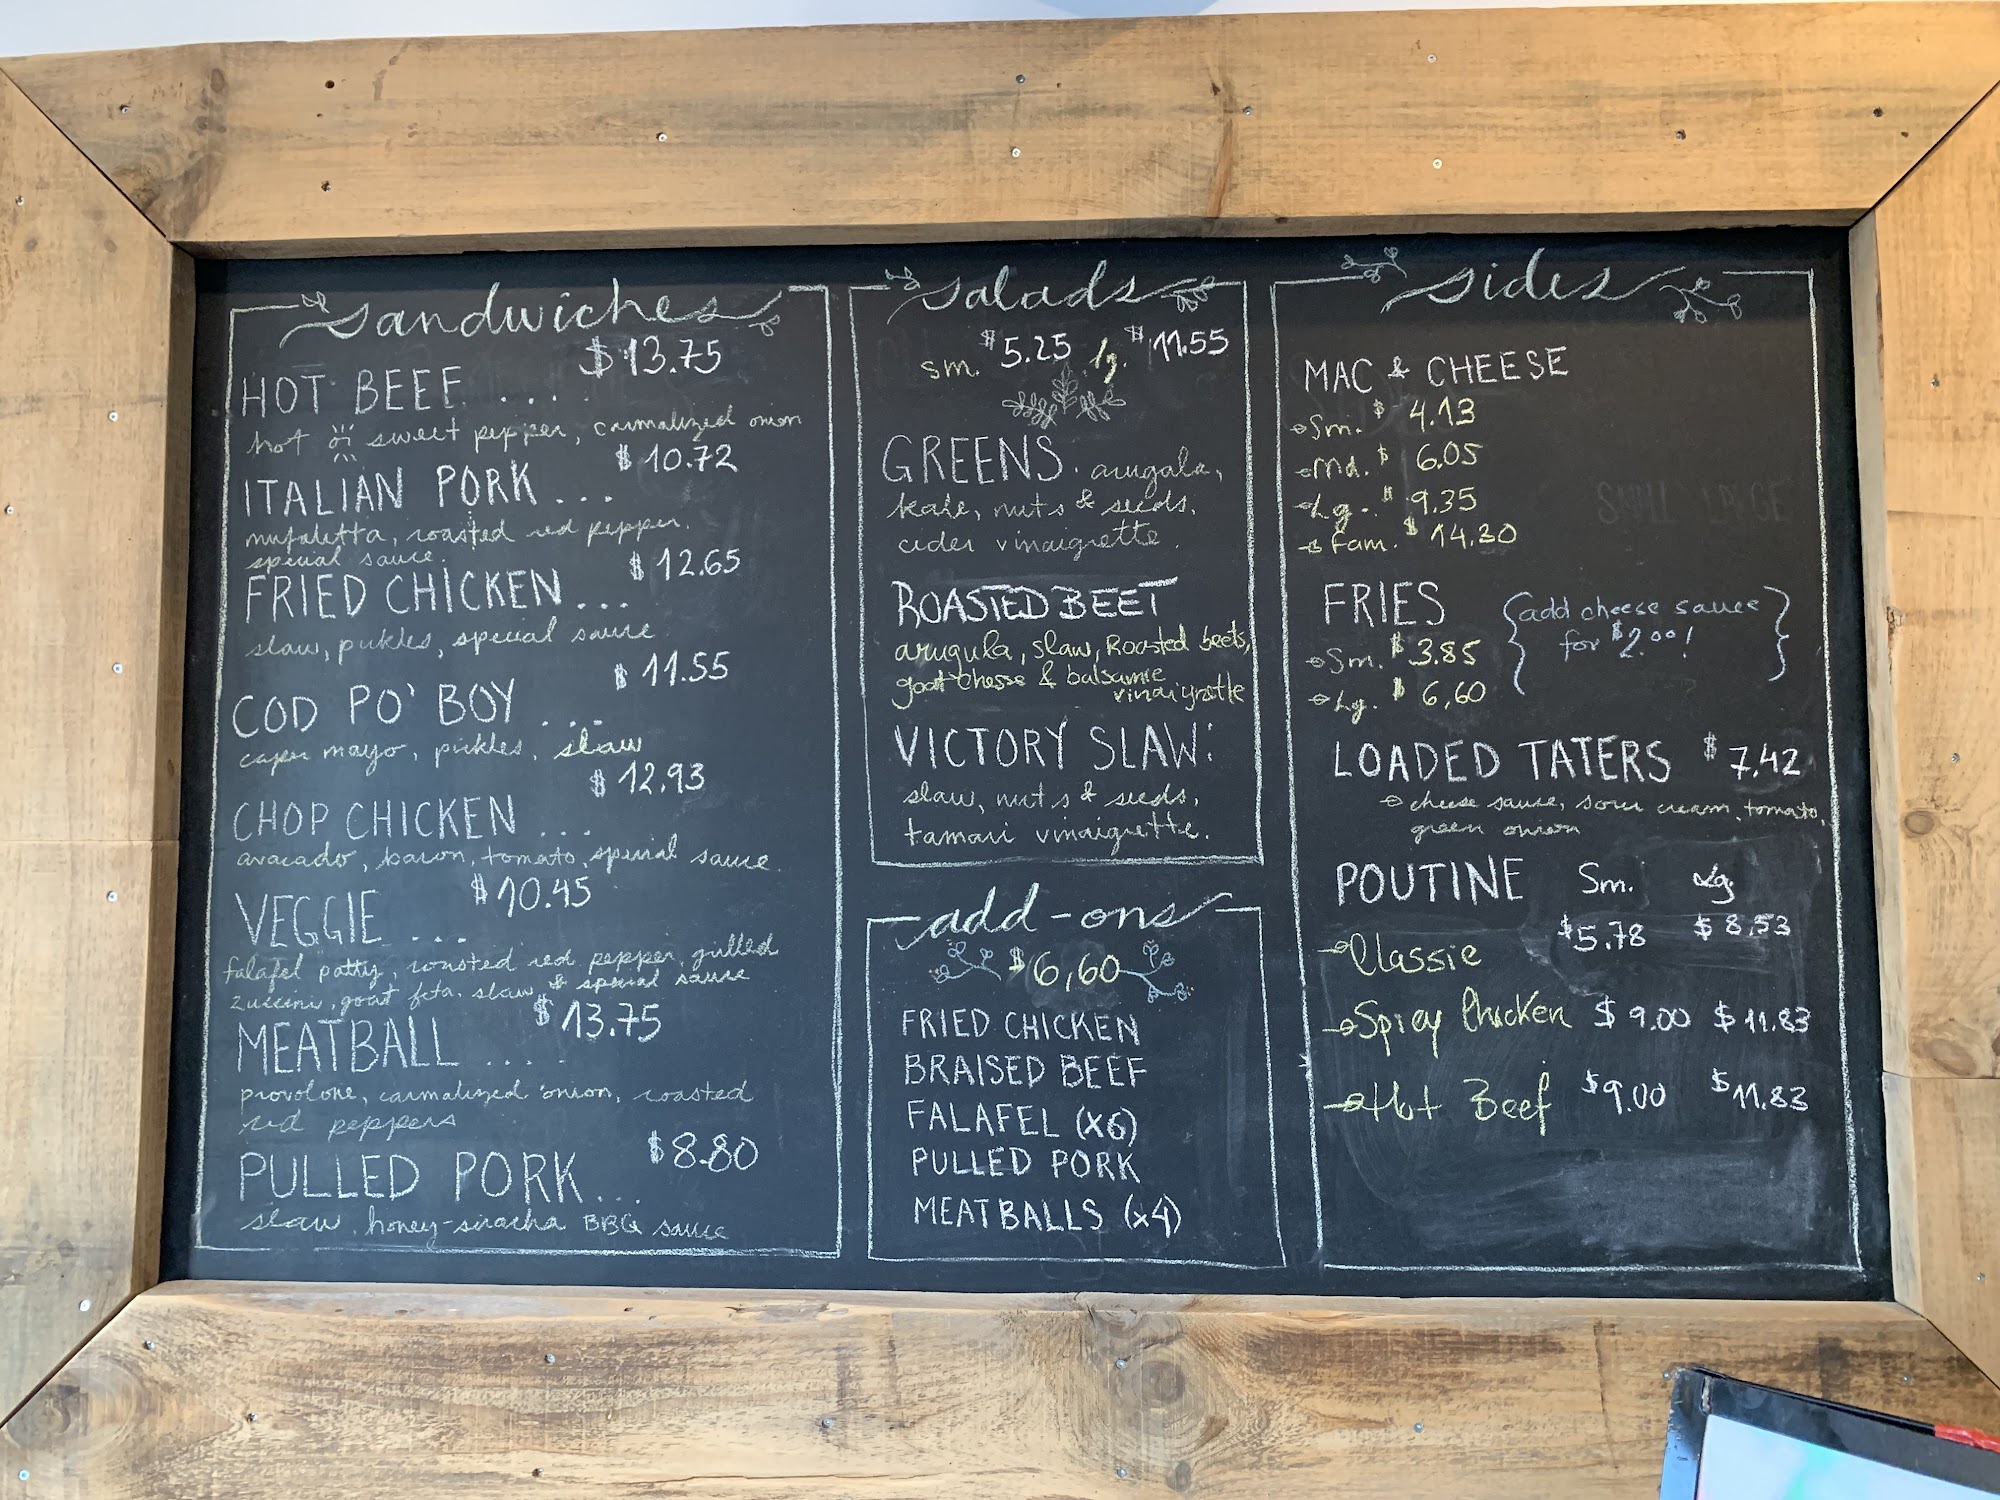 sandwiches
$13.75
HOT BEEF ....
hot or sweet pepper, carmalized onion
$10.72
ITALIAN PORK ...
mufaletta, roasted red pepper,
special sauce.
$12.65
FRIED CHICKEN ...
slaw, pickles, special sauce
$11.55
COD PO' BOY ...
caper mayo, pickles, slaw
$12.93
CHOP CHICKEN ...
avacado, bacon, tomato, special sauce
$10.45
VEGGIE ...
falafel patty, roasted red pepper, grilled
zuccini, goat feta, slaw & special sauce
$13.75
MEATBALL ....
provolone, carmalized onion, roasted
red peppers
$8.80
PULLED PORK ...
slaw, honey-siracha BBQ sauce
salads
sm. $5.25 lg. $11.55
GREENS. arugala,
kale, nuts & seeds,
cider vinaigrette.
ROASTED BEET
arugula, slaw, Roasted beets,
goat chesse & balsamic
vinaigrette
VICTORY SLAW:
slaw, nuts & seeds,
tamari vinaigrette.
add-ons
$6,60
FRIED CHICKEN
BRAISED BEEF
FALAFEL (x6)
PULLED PORK
MEATBALLS (x4)
sides
MAC & CHEESE
Sm. $ 4.13
Md. $ 6.05
Lg. $ 9.35
Fam. $ 14.30
FRIES
Sm. $3.85
Lg. $ 6,60
{add cheese sauce
for $2.00!}
LOADED TATERS $7.42
cheese sauce, sour cream, tomato,
green onion
POUTINE Sm. Lg.
Classic $5.78 $8,53
Spicy Chicken $9.00 $11.83
Hot Beef $9.00 $11.83